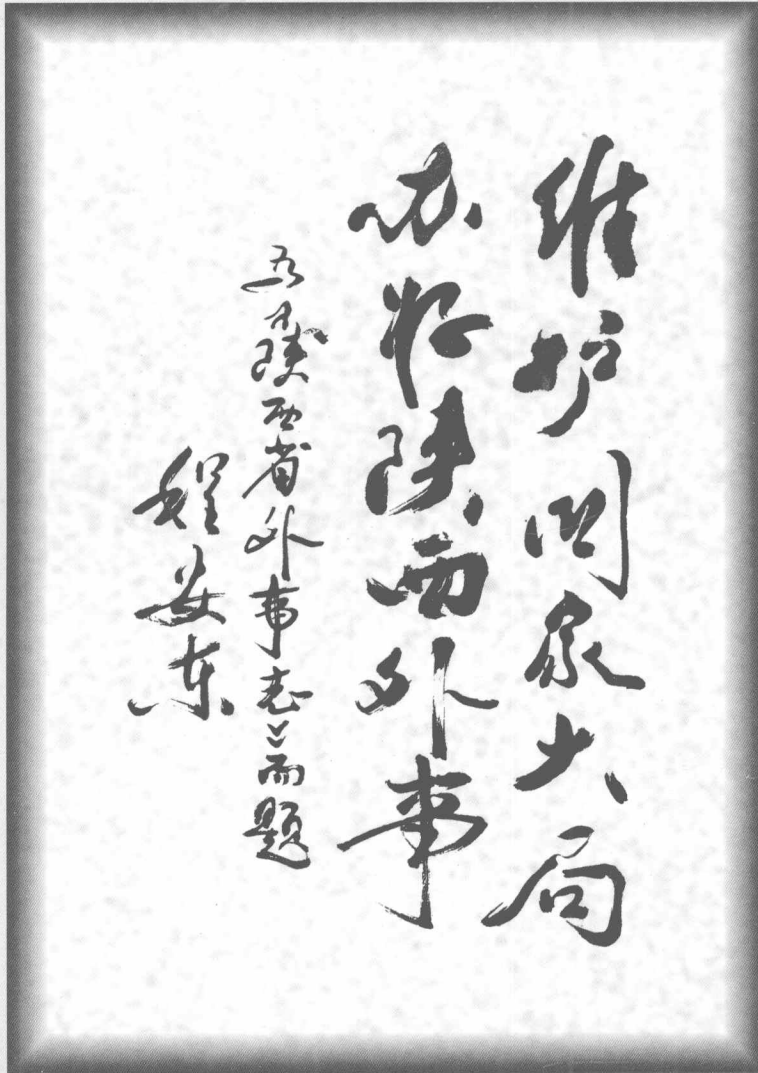 维护国家大局
办好陕西外事
为《陕西省外事志》而题
程安东